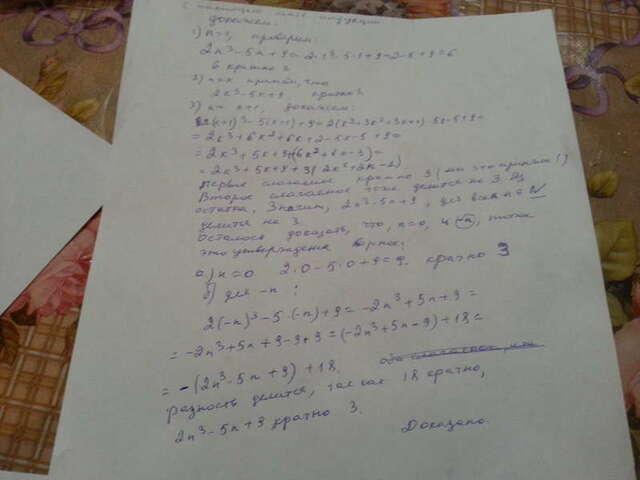 С помощью мат. индукции
докажем:
1) n=1, проверим:
2n³-5n+9=2·1³-5·1+9=2-5+9=6
6 кратно 3
2) n=k примем, что
2k³-5k+9 кратно 3
3) n=k+1, докажем:
2(k+1)³-5(k+1)+9=2(k³+3k²+3k+1)-5k-5+9=
=2k³+6k²+6k+2-5k-5+9=
=2k³-5k+9+(6k²+6k-3)=
=2k³-5k+9+3(2k²+2k-1)
Первое слагаемое кратно 3 (мы это приняли!)
Второе слагаемое тоже делится на 3 без
остатка. Значит, 2n³-5n+9, для всех n∈N
делится на 3.
Осталось доказать, что, n=0, и -n, тоже
это утверждение верно:
а) n=0 2·0-5·0+9=9. кратно 3
б) для -n:
2(-n)³-5·(-n)+9=-2n³+5n+9=
=-2n³+5n+9-9+9=(-2n³+5n-9)+18=
=-(2n³-5n+9)+18.
разность делится, так как 18 кратно,
2n³-5n+9 кратно 3.
Доказано.